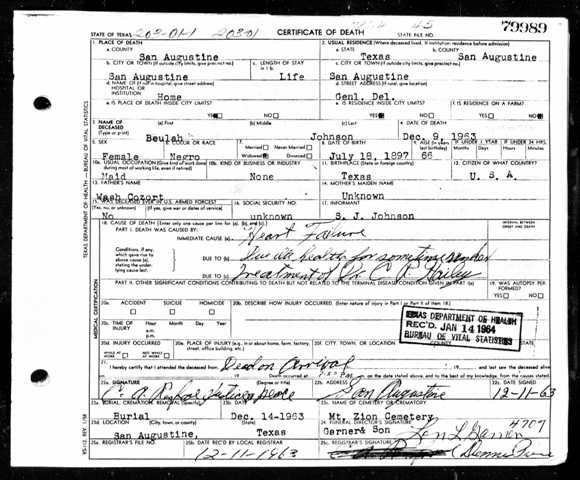 79989
STATE OF TEXAS 203-01-1 20301 CERTIFICATE OF DEATH STATE FILE NO.
1. PLACE OF DEATH 2. USUAL RESIDENCE (Where deceased lived. If institution: residence before admission)
a. COUNTY a. STATE b. COUNTY
San Augustine Texas San Augustine
b. CITY OR TOWN (If outside city limits, give precinct no.) c. LENGTH OF STAY in 1 b. c. CITY OR TOWN (If outside city limits, give precinct no.)
San Augustine Life San Augustine
d. NAME OF (If not in hospital, give street address) HOSPITAL OR INSTITUTION d. STREET ADDRESS (If rural, give location)
Home Genl. Del.
e. IS PLACE OF DEATH INSIDE CITY LIMITS? e. IS RESIDENCE INSIDE CITY LIMITS? f. IS RESIDENCE ON A FARM?
YES NO YES NO YES NO
3. NAME OF DECEASED (Type or print) (a) First (b) Middle (c) Last 4. DATE OF DEATH
Beulah Johnson Dec. 9, 1963
5. SEX 6. COLOR OR RACE 7. Married Never Married Widowed Divorced 8. DATE OF BIRTH 9. AGE IF UNDER 1 YEAR IF UNDER 24 HRS.
Months Days Hours Min.
Female Negro July 18, 1897 66
10a. USUAL OCCUPATION (Give kind of work done during most of working life, even if retired) 10b. KIND OF BUSINESS OR INDUSTRY 11. BIRTHPLACE (State or foreign country) 12. CITIZEN OF WHAT COUNTRY?
Maid None Texas U. S. A.
13. FATHER'S NAME 14. MOTHER'S MAIDEN NAME
Wash Cozort Unknown
15. WAS DECEASED EVER IN U.S. ARMED FORCES? 16. SOCIAL SECURITY NO. 17. INFORMANT
(Yes, no, or unknown) (If yes, give war or dates of service)
No unknown S. J. Johnson
18. CAUSE OF DEATH (Enter only one cause per line for (a), (b), and (c).) INTERVAL BETWEEN ONSET AND DEATH
PART I. DEATH WAS CAUSED BY:
IMMEDIATE CAUSE (a) Heart Failure
Conditions, if any, which gave rise to above cause (a), stating the underlying cause last.
DUE TO (b) health for sometime under
DUE TO (c) treatment of Dr. C. R.
PART II. OTHER SIGNIFICANT CONDITIONS CONTRIBUTING TO DEATH BUT NOT RELATED TO THE TERMINAL DISEASE CONDITION GIVEN IN PART I(a) 19. WAS AUTOPSY PERFORMED?
YES NO
20a. ACCIDENT SUICIDE HOMICIDE 20b. DESCRIBE HOW INJURY OCCURRED. (Enter nature of injury in Part I or Part II of item 18.)
20c. TIME OF INJURY Hour Month Day Year
a.m.
p.m.
TEXAS DEPARTMENT OF HEALTH
REC'D. JAN 14 1964
BUREAU OF VITAL STATISTICS
20d. INJURY OCCURRED 20e. PLACE OF INJURY (e.g. in or about home, farm, factory, street, office building, etc.) 20f. CITY, TOWN, OR LOCATION COUNTY
WHILE AT WORK NOT WHILE AT WORK
21. I hereby certify that I attended the deceased Dead on Arrival 19 , and last saw the deceased alive
Death occurred at m. on the date stated above, and to the best of my knowledge, from the causes stated.
22a. SIGNATURE (Degree or title) 22b. ADDRESS 22c. DATE SIGNED
C. A. Justice Peace San Augustine 12-11-63
23a. BURIAL, CREMATION, REMOVAL (Specify) 23b. DATE 23c. NAME OF CEMETERY OR CREMATORY
Burial Dec. 14-1963 Mt. Zion Cemetery
23d. LOCATION (City, town, or county) (State) 24. FUNERAL DIRECTOR'S SIGNATURE
San Augustine, Texas Garner& Son 4707
25a. REGISTRAR'S FILE NO. 25b. DATE REC'D BY LOCAL REGISTRAR 25c. REGISTRAR'S SIGNATURE
12-11-1963
TEXAS DEPARTMENT OF HEALTH — BUREAU OF VITAL STATISTICS
MEDICAL CERTIFICATION